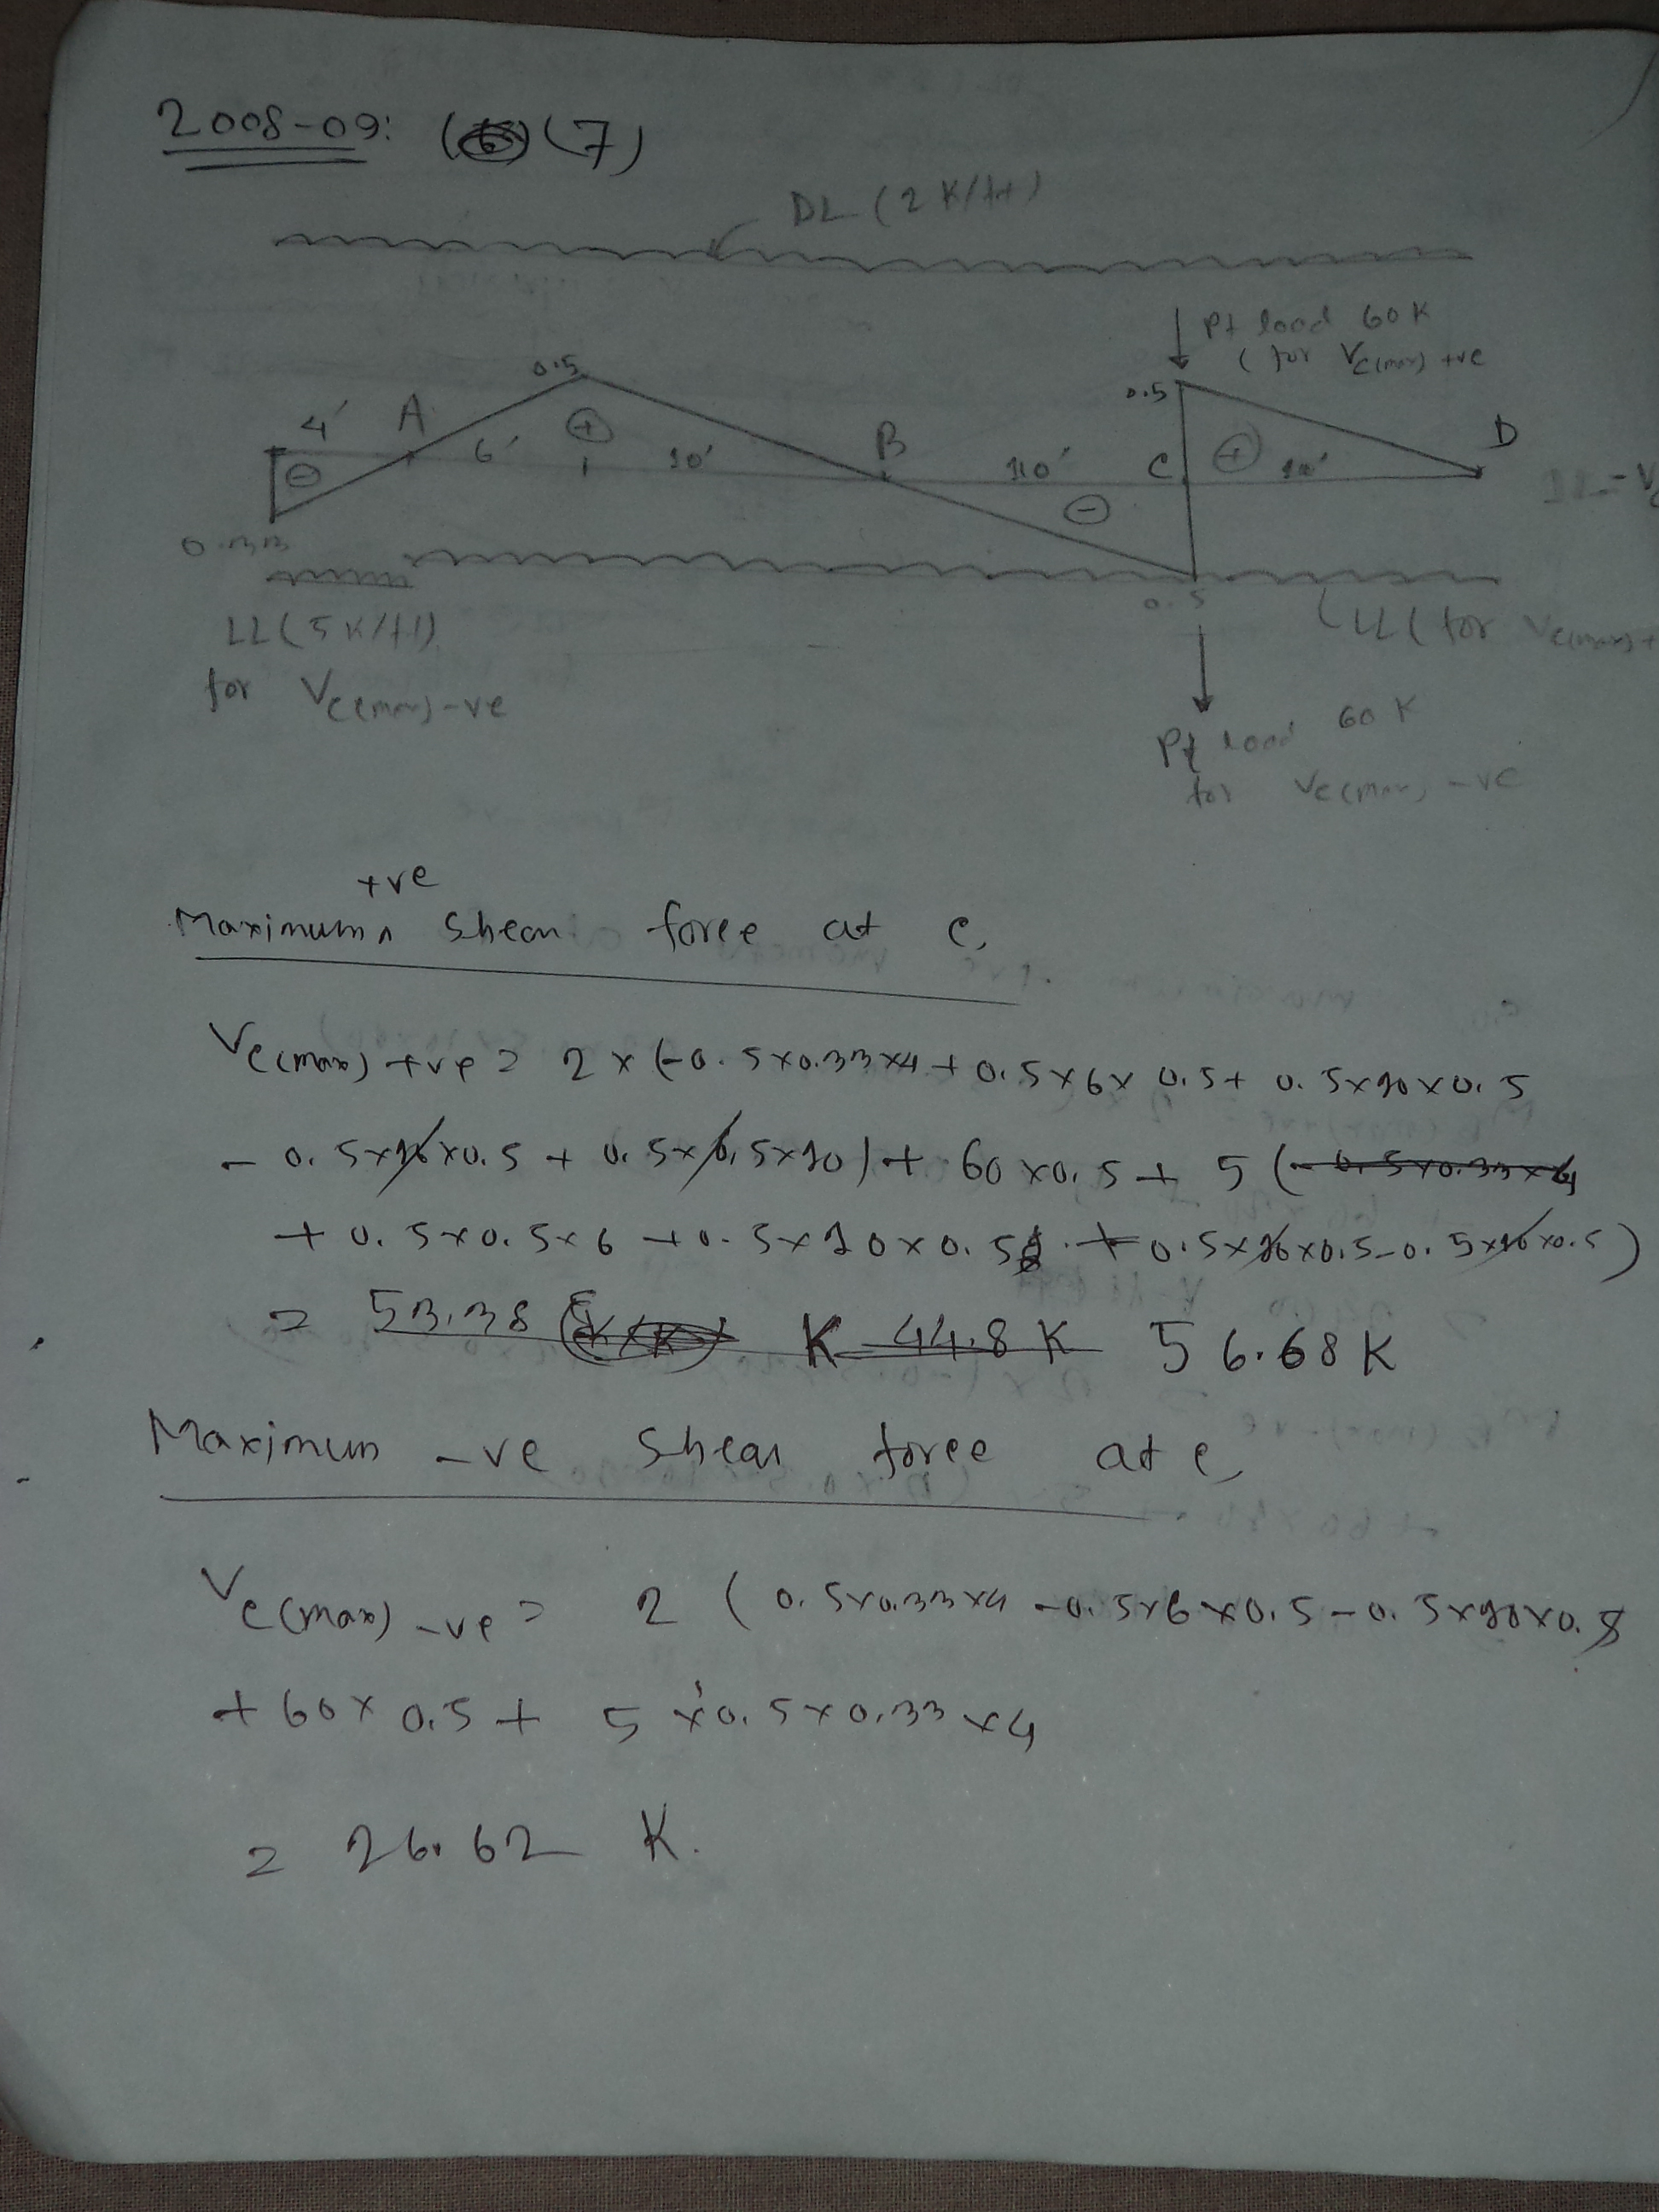 2008-09: (7)
DL (2 K/ft)
Pt load 60 K
(for Vc(max) +ve
0.5
0.5
4' A
6' + 10'
B
110' C + 10'
D
-
-
0.33
0.5
LL (5 K/ft)
for Vc(max) -ve
LL (for Vc(max)+
Pt load 60 K
for Vc(max) -ve
+ve
Maximum ∧ Shear force at c,
Vc(max) +ve = 2 x (-0.5x0.33x4 + 0.5x6x0.5 + 0.5x10x0.5
- 0.5x10x0.5 + 0.5x0.5x10) + 60x0.5 + 5 (-0.5x0.33x4
+ 0.5x0.5x6 + 0.5x10x0.5 + 0.5x10x0.5 - 0.5x10x0.5)
= 53.38 K 44.8 K 56.68 K
Maximum -ve Shear force at c,
Vc(max) -ve = 2 (0.5x0.33x4 - 0.5x6x0.5 - 0.5x10x0.5
+ 60x0.5 + 5x0.5x0.33x4
= 26.62 K.